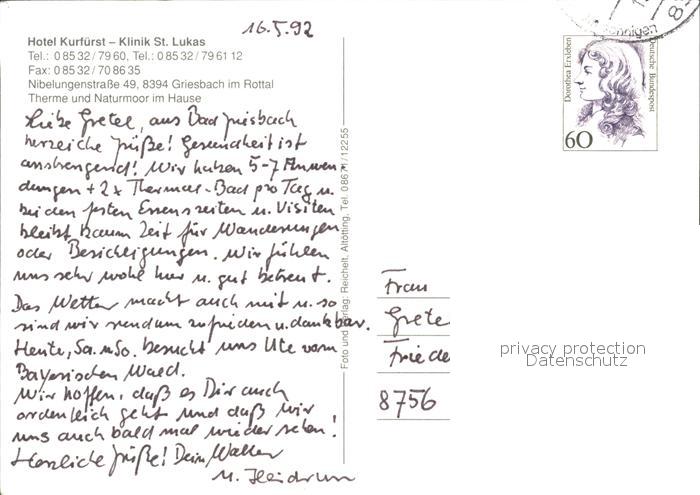 16.5.92
Hotel Kurfürst – Klinik St. Lukas
Tel.: 0 85 32 / 79 60, Tel.: 0 85 32 / 79 61 12
Fax: 0 85 32 / 70 86 35
Nibelungenstraße 49, 8394 Griesbach im Rottal
Therme und Naturmoor im Hause
Liebe Gretel, aus Bad Griesbach
herzliche Grüße! Gesundheit ist
anstrengend! Wir haben 5-7 Anwen-
dungen + 2 x Thermal-Bad pro Tag u.
bei den festen Essenszeiten u. Visiten
bleibt kaum Zeit für Wanderungen
oder Besichtigungen. Wir fühlen
uns sehr wohl hier u. gut betreut.
Das Wetter macht auch mit u. so
sind wir rundum zufrieden u. dankbar.
Heute, Sa. u. So. besucht uns Ute vom
Bayerischen Wald.
Wir hoffen, daß es Dir auch
ordentlich geht und daß wir
uns auch bald mal wieder sehen!
Herzliche Grüße! Dein Walter
u. Heidrun
Foto und Verlag: Reichelt, Altötting, Tel. 08671/12255
Dorothea Erxleben
Deutsche Bundespost
60
Frau
Grete
Friede
8756
privacy protection
Datenschutz